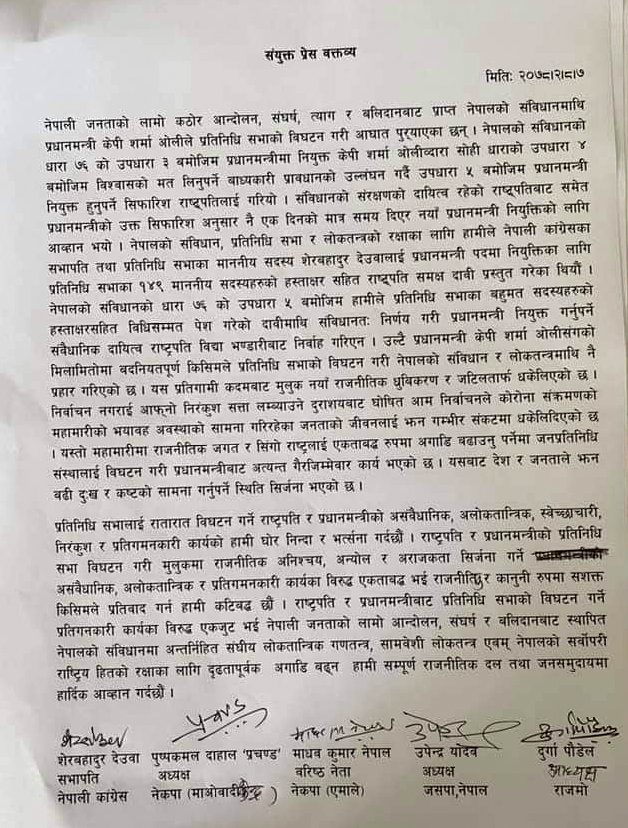 संयुक्त प्रेस वक्तव्य
मितिः २०७८।२।८।७
नेपाली जनताको लामो कठोर आन्दोलन, संघर्ष, त्याग र बलिदानबाट प्राप्त नेपालको संविधानमाथि
प्रधानमन्त्री केपी शर्मा ओलीले प्रतिनिधि सभाको विघटन गरी आघात पुर्‍याएका छन् । नेपालको संविधानको
धारा ७६ को उपधारा ३ बमोजिम प्रधानमन्त्रीमा नियुक्त केपी शर्मा ओलीव्दारा सोही धाराको उपधारा ४
बमोजिम विश्वासको मत लिनुपर्ने बाध्यकारी प्रावधानको उल्लंघन गर्दै उपधारा ५ बमोजिम प्रधानमन्त्री
नियुक्त हुनुपर्ने सिफारिश राष्ट्रपतिलाई गरियो । संविधानको संरक्षणको दायित्व रहेको राष्ट्रपतिबाट समेत
प्रधानमन्त्रीको उक्त सिफारिश अनुसार नै एक दिनको मात्र समय दिएर नयाँ प्रधानमन्त्री नियुक्तिको लागि
आव्हान भयो । नेपालको संविधान, प्रतिनिधि सभा र लोकतन्त्रको रक्षाका लागि हामीले नेपाली कांग्रेसका
सभापति तथा प्रतिनिधि सभाका माननीय सदस्य शेरबहादुर देउवालाई प्रधानमन्त्री पदमा नियुक्तिका लागि
प्रतिनिधि सभाका १४९ माननीय सदस्यहरुको हस्ताक्षर सहित राष्ट्रपति समक्ष दावी प्रस्तुत गरेका थियौं ।
नेपालको संविधानको धारा ७६ को उपधारा ५ बमोजिम हामीले प्रतिनिधि सभाका बहुमत सदस्यहरुको
हस्ताक्षरसहित विधिसम्मत पेश गरेको दावीमाथि संविधानतः निर्णय गरी प्रधानमन्त्री नियुक्त गर्नुपर्ने
संवैधानिक दायित्व राष्ट्रपति विद्या भण्डारीबाट निर्वाह गरिएन । उल्टै प्रधानमन्त्री केपी शर्मा ओलीसंगको
मिलामितोमा बदनियतपूर्ण किसिमले प्रतिनिधि सभाको विघटन गरी नेपालको संविधान र लोकतन्त्रमाथि नै
प्रहार गरिएको छ । यस प्रतिगामी कदमबाट मुलुक नयाँ राजनीतिक ध्रुविकरण र जटिलतार्फ धकेलिएको छ ।
निर्वाचन नगराई आफ्नो निरंकुश सत्ता लम्ब्याउने दुराशयबाट घोषित आम निर्वाचनले कोरोना संक्रमणको
महामारीको भयावह अवस्थाको सामना गरिरहेका जनताको जीवनलाई झन गम्भीर संकटमा धकेलिदिएको छ
। यस्तो महामारीमा राजनीतिक जगत र सिंगो राष्ट्रलाई एकताबद्ध रुपमा अगाडि बढाउनु पर्नेमा जनप्रतिनिधि
संस्थालाई विघटन गरी प्रधानमन्त्रीबाट अत्यन्त गैरजिम्मेवार कार्य भएको छ । यसबाट देश र जनताले झन
बढी दुःख र कष्टको सामना गर्नुपर्ने स्थिति सिर्जना भएको छ ।
प्रतिनिधि सभालाई रातारात विघटन गर्ने राष्ट्रपति र प्रधानमन्त्रीको असंवैधानिक, अलोकतान्त्रिक, स्वेच्छाचारी,
निरंकुश र प्रतिगमनकारी कार्यको हामी घोर निन्दा र भर्त्सना गर्दछौं । राष्ट्रपति र प्रधानमन्त्रीको प्रतिनिधि
सभा विघटन गरी मुलुकमा राजनीतिक अनिश्चय, अन्योल र अराजकता सिर्जना गर्ने
असंवैधानिक, अलोकतान्त्रिक र प्रतिगमनकारी कार्यका विरुद्ध एकताबद्ध भई राजनीतिक र कानुनी रुपमा सशक्त
किसिमले प्रतिवाद गर्न हामी कटिबद्ध छौं । राष्ट्रपति र प्रधानमन्त्रीबाट प्रतिनिधि सभाको विघटन गर्ने
प्रतिगनकारी कार्यका विरुद्ध एकजुट भई नेपाली जनताको लामो आन्दोलन, संघर्ष र बलिदानबाट स्थापित
नेपालको संविधानमा अन्तर्निहित संघीय लोकतान्त्रिक गणतन्त्र, सामवेशी लोकतन्त्र एवम् नेपालको सर्वोपरी
राष्ट्रिय हितको रक्षाका लागि दृढतापूर्वक अगाडि बढ्न हामी सम्पूर्ण राजनीतिक दल तथा जनसमुदायमा
हार्दिक आव्हान गर्दछौं ।
शेरबहादुर देउवा पुष्पकमल दाहाल 'प्रचण्ड' माधव कुमार नेपाल उपेन्द्र यादव दुर्गा पौडेल
सभापति अध्यक्ष वरिष्ठ नेता अध्यक्ष अध्यक्ष
नेपाली कांग्रेस नेकपा (माओवादी केन्द्र) नेकपा (एमाले) जसपा,नेपाल राजमो